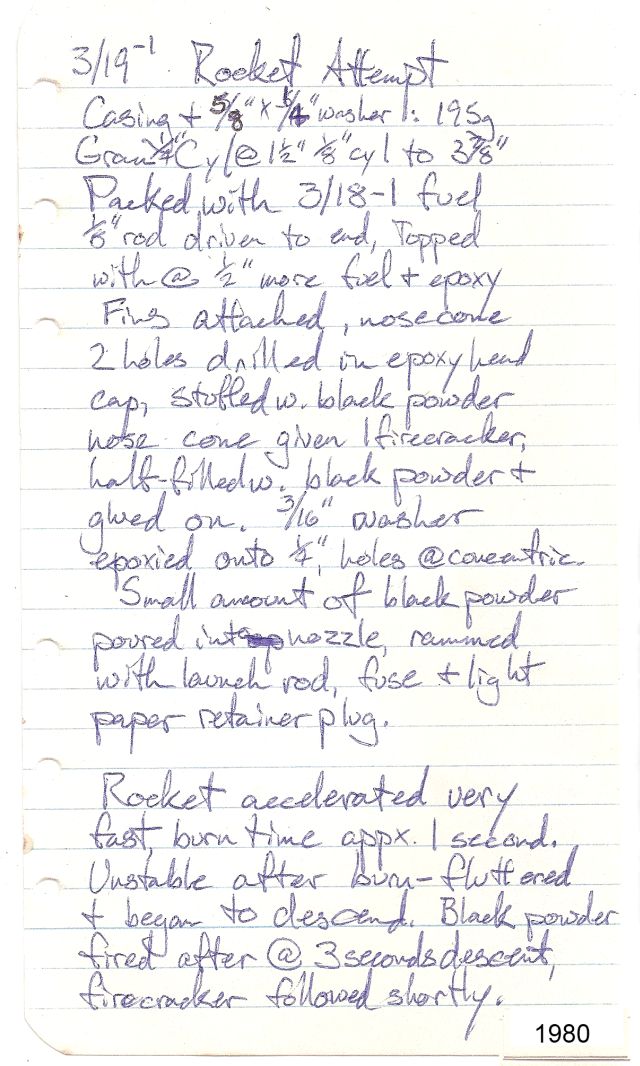 3/19-1 Rocket Attempt
Casing + 5/8" x 1/4" washer: 195g
Grain 1/4" Cyl @ 1 1/2" 1/8" cyl to 3 7/8"
Packed with 3/18-1 fuel
1/8" rod driven to end, Topped
with @ 1/2" more fuel + epoxy
Fins attached, nosecone
2 holes drilled in epoxy head
cap, stuffed w. black powder
nose cone given 1 firecracker,
half-filled w. black powder +
glued on. 3/16" washer
epoxied onto 1/4", holes @ concentric.
Small amount of black powder
poured into nozzle, rammed
with launch rod, fuse + light
paper retainer plug.
Rocket accelerated very
fast, burn time appx. 1 second.
Unstable after burn - fluttered
+ began to descend. Black powder
fired after @ 3 seconds descent,
firecracker followed shortly.
1980